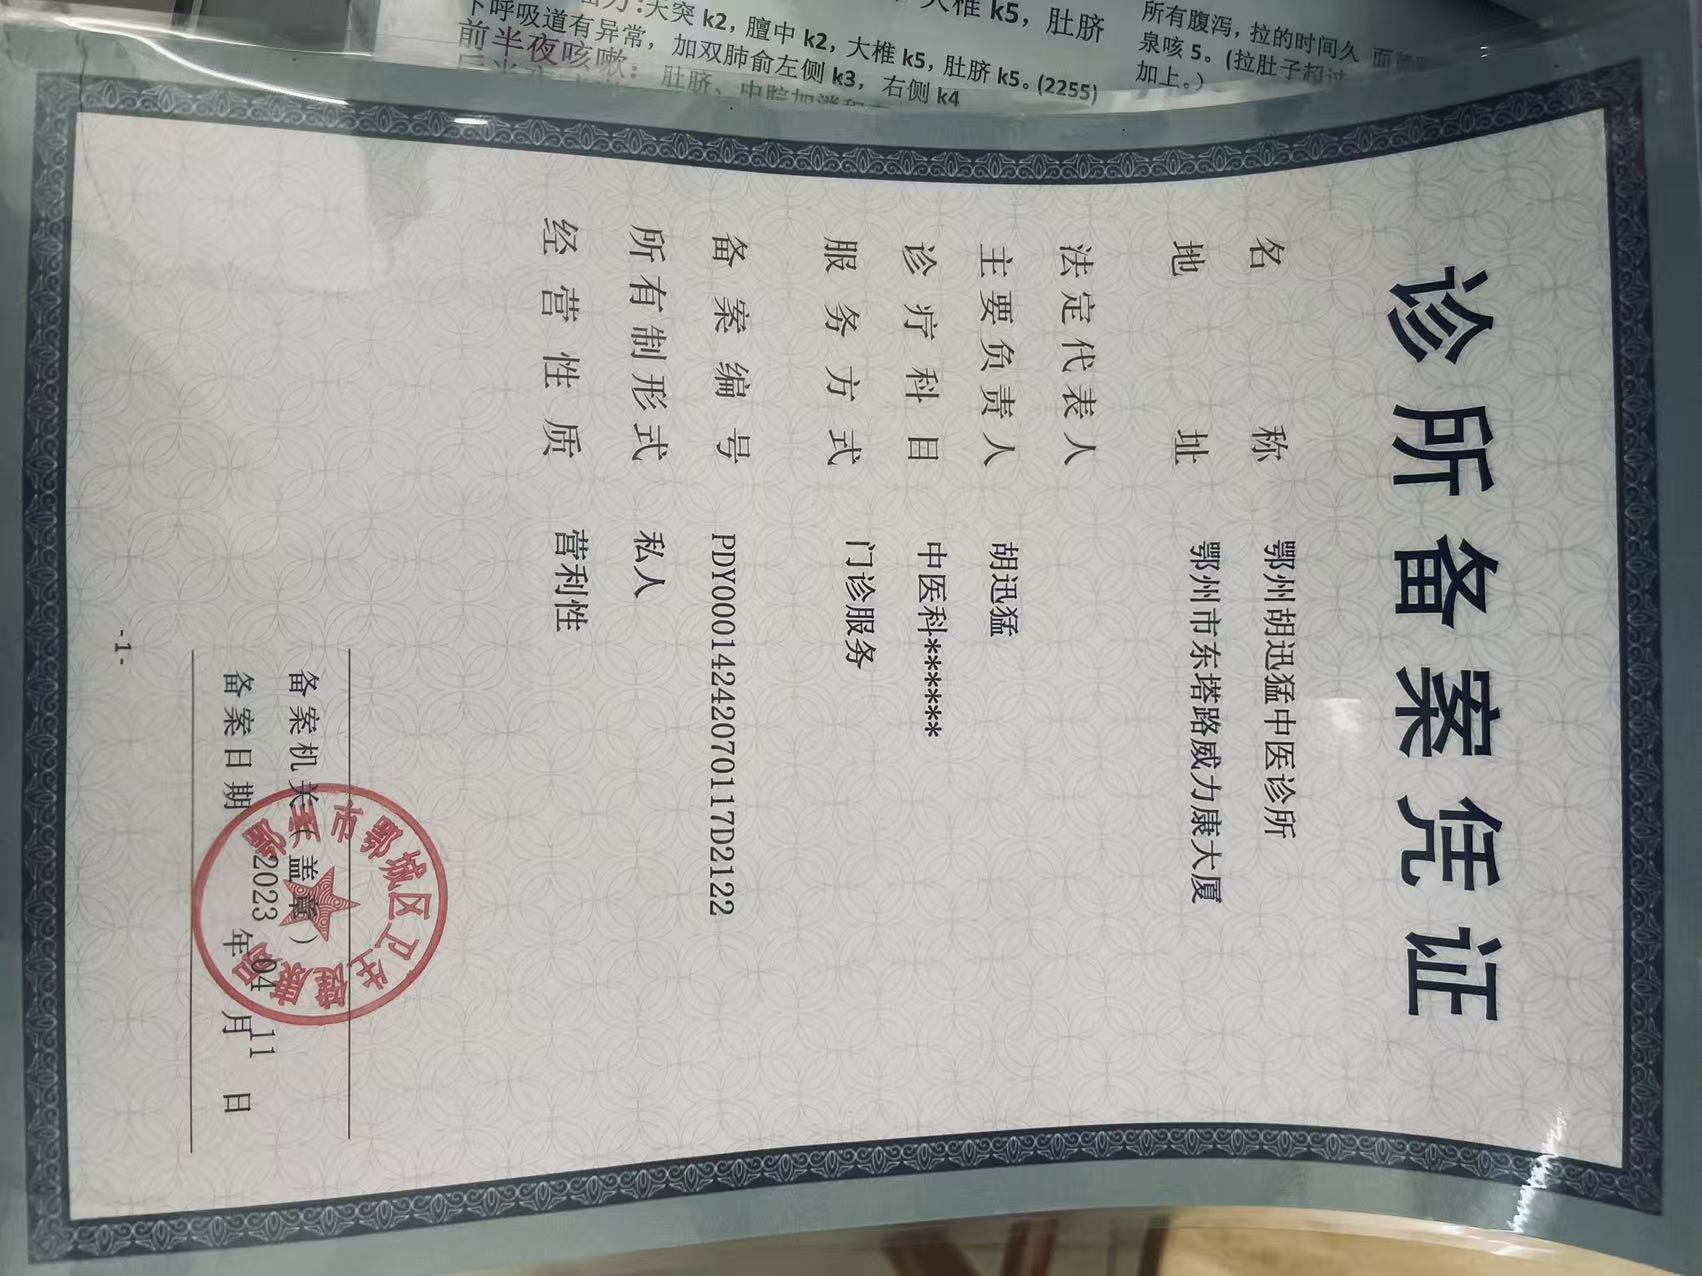 大椎 k5，肚脐
天突 k2，膻中 k2，大椎 k5，肚脐 k5。(2255)
下呼吸道有异常，加双肺俞左侧 k3，右侧 k4
前半夜咳嗽：肚脐、中脘加消积
所有腹泻，拉的时间久
泉咳 5。(拉肚子超过
加上。）
诊所备案凭证
名称 鄂州胡迅猛中医诊所
地址 鄂州市东塔路威力康大厦
法定代表人
主要负责人 胡迅猛
诊疗科目 中医科******
服务方式 门诊服务
备案编号 PDY00014242070117D2122
所有制形式 私人
经营性质 营利性
备案机关（盖章）
备案日期 2023 年 04 月 11 日
鄂州市鄂城区卫生健康局
-1-